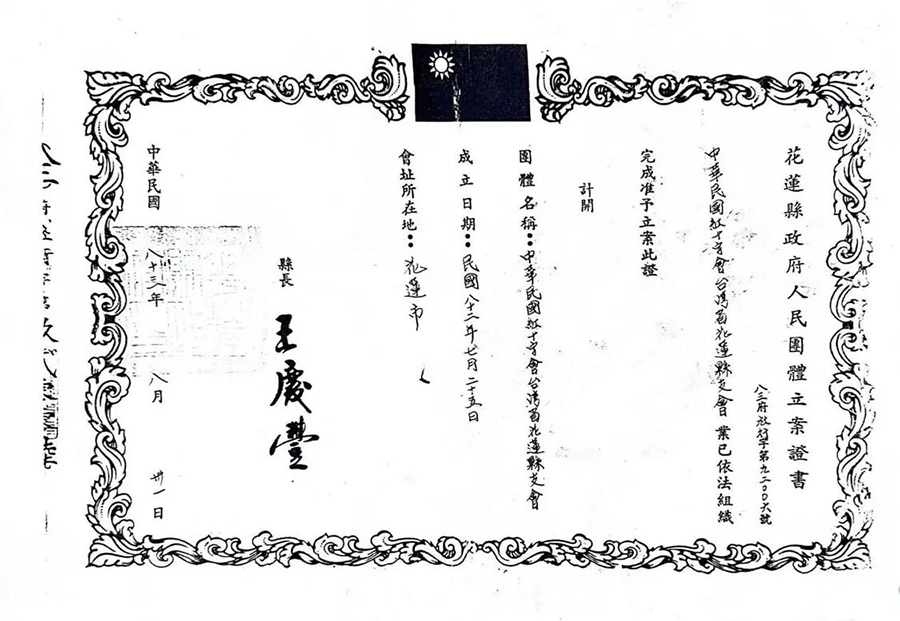 花蓮縣政府人民團體立案證書
八三府社行字第九二００六號
中華民國紅十字會台灣省花蓮縣支會 業已依法組織
完成准予立案此證
計開
團體名稱：中華民國紅十字會台灣省花蓮縣支會
成立日期：民國八十二年七月二十五日
會址所在地：花蓮市
縣長 王慶豐
中華民國 八十三年 八月 卅一日